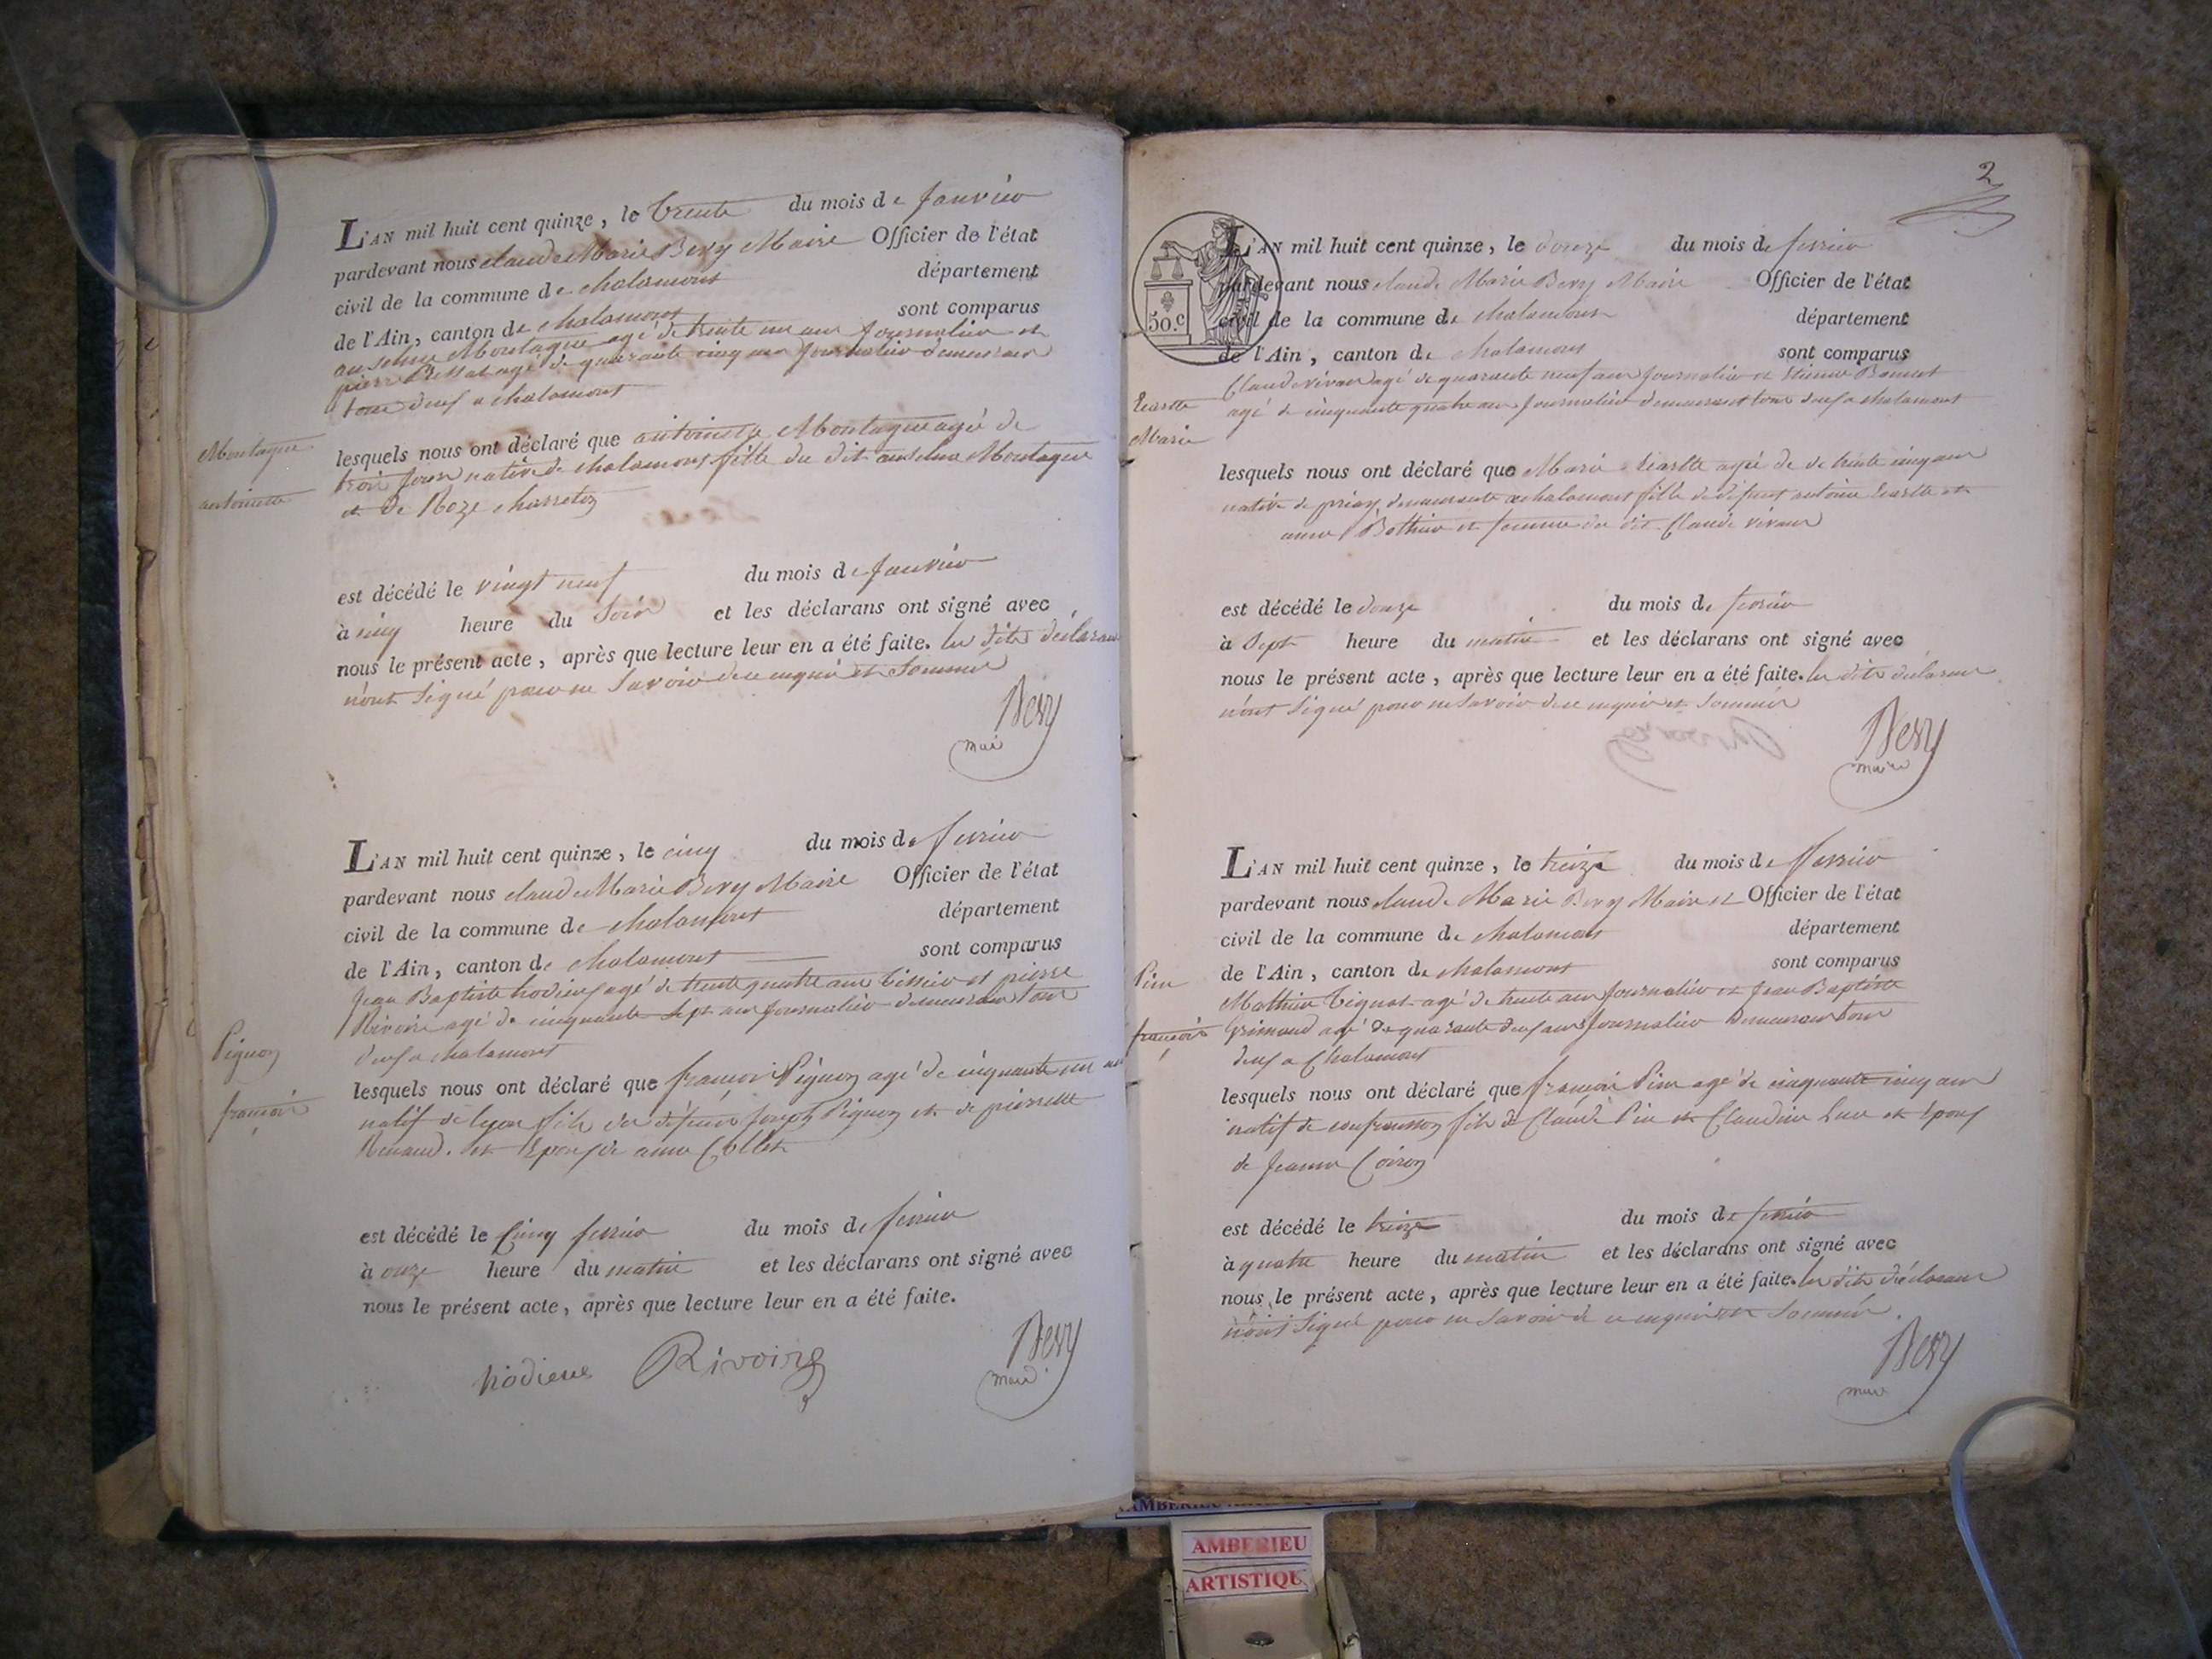 L'AN mil huit cent quinze, le trente du mois de Janvier
pardevant nous claude Marie Bery Maire Officier de l'état
civil de la commune de chalamont département
de l'Ain, canton de chalamont sont comparus
anselme Montagne agé de trente un ans journalier et
pierre agé de quarante cinq ans journalier demeurans
tous deux a chalamont
Montagne
antoinette
lesquels nous ont déclaré que antoinette Montagne agée de
trois jours native de chalamont fille du dit anselme Montagne
et de Roze charreton
est décédé le vingt neuf du mois de janvier
à cinq heure du Soir et les déclarans ont signé avec
nous le présent acte, après que lecture leur en a été faite. les dits déclarans
n'ont signé pour ne savoir de ce enquis et sommés
Bery
maire
L'AN mil huit cent quinze, le cinq du mois de fevrier
pardevant nous claude Marie Bery Maire Officier de l'état
civil de la commune de chalamont département
de l'Ain, canton de chalamont sont comparus
Jean Baptiste hodieux agé de trente quatre ans tissier et pierre
Rivoire agé de cinquante sept ans journalier demeurans tous
deux a chalamont
Pignon
françois
lesquels nous ont déclaré que françois Pignon agé de cinquante un ans
natif de lyon fils de défunt joseph Pignon et de pierrette
Renaud. et Epoux de anne Collet
est décédé le Cinq fevrier du mois de fevrier
à onze heure du matin et les déclarans ont signé avec
nous le présent acte, après que lecture leur en a été faite.
hodieux Rivoire Bery
maire
2
50.c
L'AN mil huit cent quinze, le douze du mois de fevrier
pardevant nous claude Marie Bery Maire Officier de l'état
civil de la commune de chalamont département
de l'Ain, canton de chalamont sont comparus
Claude vivan agé de quarante neuf ans journalier et Etienne Bonnet
agé de cinquante quatre ans journalier demeurant tous deux a chalamont
Marie
lesquels nous ont déclaré que Marie agée de de trente cinq ans
native de priay demeurante a chalamont fille de défunt antoine et
anne Bothier et femme du dit Claude vivan
est décédé le douze du mois de fevrier
à Sept heure du matin et les déclarans ont signé avec
nous le présent acte, après que lecture leur en a été faite. les dits déclarans
n'ont signé pour ne savoir de ce enquis et sommés
Bery
maire
L'AN mil huit cent quinze, le treize du mois de fevrier
pardevant nous claude Marie Bery Maire et Officier de l'état
civil de la commune de chalamont département
de l'Ain, canton de chalamont sont comparus
Mathieu tignat agé de trente ans journalier et Jean Baptiste
grimaud agé de quarante deux ans journalier demeurans tous
deux a Chalamont
Pin
françois
lesquels nous ont déclaré que françois Pin agé de cinquante cinq ans
natif de confranson fils de Claude Pin et Claudine et Epoux
de jeanne Coiron
est décédé le treize du mois de fevrier
à quatre heure du matin et les déclarans ont signé avec
nous le présent acte, après que lecture leur en a été faite. les dits déclarans
n'ont signé pour ne savoir de ce enquis et sommés
Bery
maire
AMBERIEU
ARTISTIQU